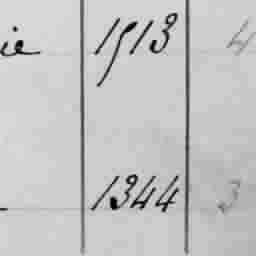 ie 1513 4
1344 3